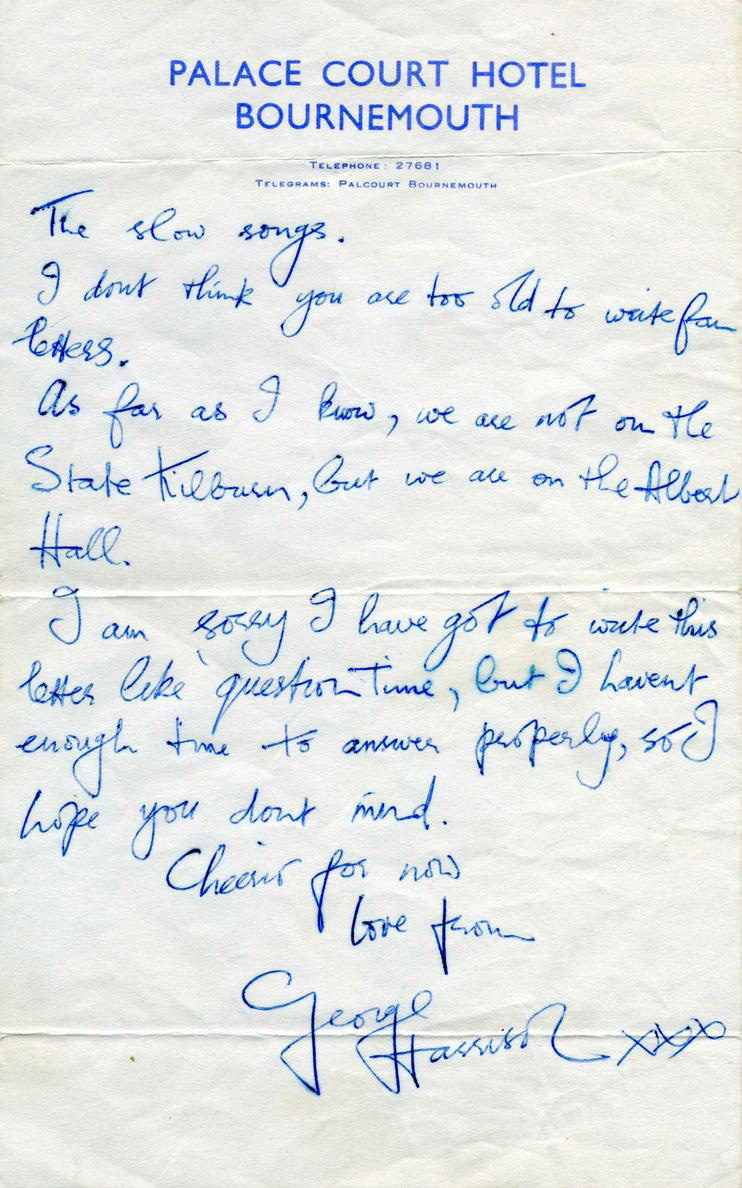 PALACE COURT HOTEL
BOURNEMOUTH
TELEPHONE: 27681
TELEGRAMS: PALCOURT BOURNEMOUTH
The slow songs.
I dont think you are too old to write fan
letters.
As far as I know, we are not on the
State Kilburn, but we are on the Albert
Hall.
I am sorry I have got to write this
letter like question Time, but I havent
enough time to answer properly, so I
hope you dont mind.
Cheerio for now
love from
George
Harrison xxx